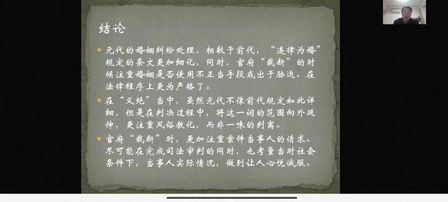 结论
元代的婚姻纠纷处理，相较于前代，“违律为婚”
规定的条文更加细化，同时，官府“裁断”的时
候注重婚姻是否使用不正当手段或出于胁迫。在
法律程序上更为严格了。
在“义绝”当中，虽然元代不像前代规定如此详
细，但是在判决过程中，将这一词的范围向外延
伸，更注重风俗教化，而非一味的判离。
官府“裁断”时，更加注重案件当事人的请求。
尽可能在完成司法审判的同时，也考量当时社会
条件下，当事人实际情况，做到让人心悦诚服。